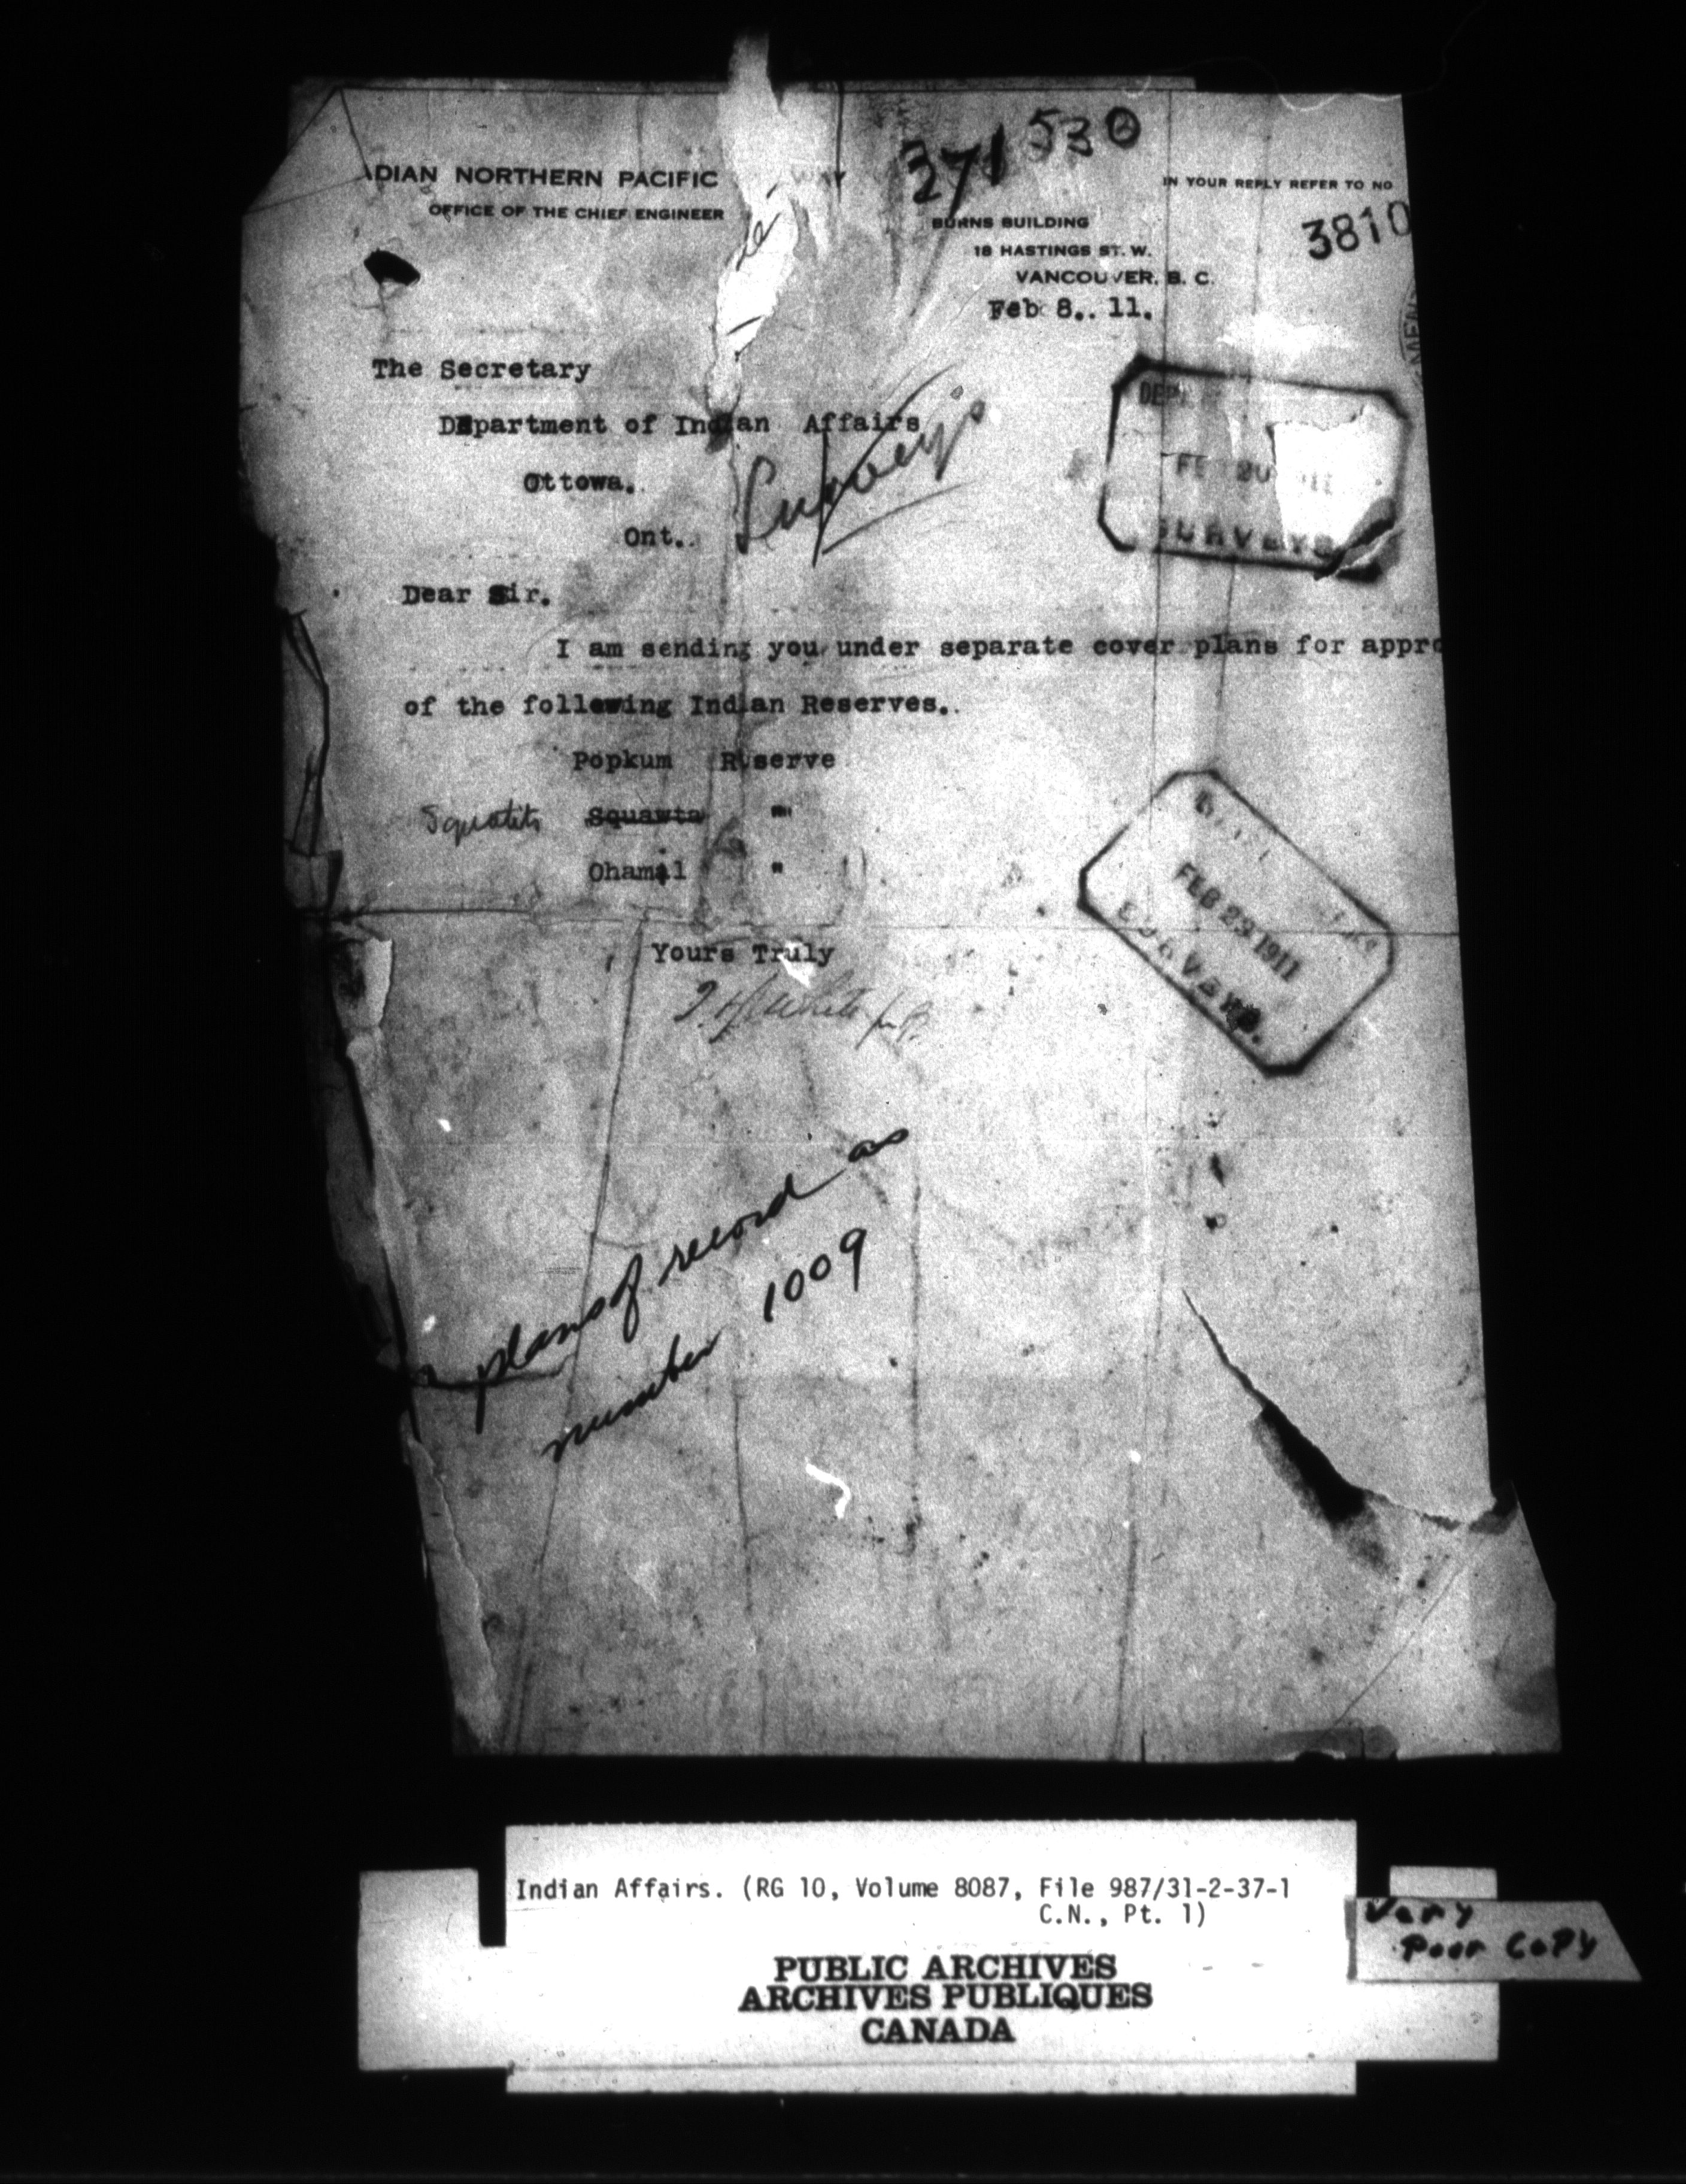 371530
ADIAN NORTHERN PACIFIC WAY
OFFICE OF THE CHIEF ENGINEER
IN YOUR REPLY REFER TO NO
3810
BURNS BUILDING
18 HASTINGS ST. W.
VANCOUVER, B. C.
Feb 8.. 11.
The Secretary
Department of Indian Affairs
Ottowa..
Ont..
Surveys
SURVEYS
Dear Sir.
I am sending you under separate cover plans for appro
of the following Indian Reserves..
Popkum Reserve
Squatits Squawts "
Ohamil "
FEB 23 1911
Yours Truly
plans of record as
number 1009
Indian Affairs. (RG 10, Volume 8087, File 987/31-2-37-1
C.N., Pt. 1)
Very
Poor Copy
PUBLIC ARCHIVES
ARCHIVES PUBLIQUES
CANADA